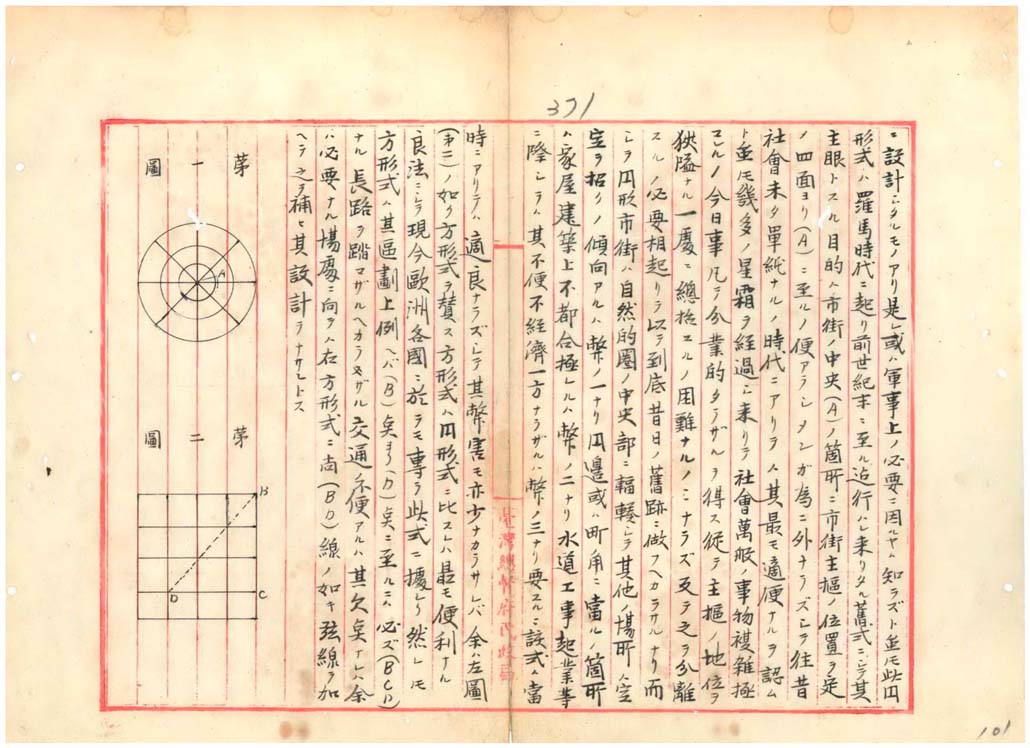 371
ニ設計シタルモノアリ是レ或ハ軍事上ノ必要ニ因ルヤハ知ラズト雖モ此円
形式ハ羅馬時代ニ起リ前世紀末ニ至ル迠行ハレ来リタル舊式ニシテ其
主眼トスル目的ハ市街ノ中央(A)ノ箇所ニ市街主樞ノ位置ヲ定
メ四面ヨリ(A)ニ至ルノ便アラシメンガ為ニ外ナラズシテ往昔
社會未タ單純ナルノ時代ニアリテハ其最モ適便ナルヲ認ム
ト雖モ幾多ノ星霜ヲ経過シ来リテ社會萬般ノ事物複雑極
マルノ今日事凡テ分業的タラザルヲ得ス従テ主樞ノ地位ヲ
狹隘ナル一處ニ總括スルノ困難ナルノミナラズ反テ之ヲ分離
スルノ必要相起リ以テ到底昔日ノ舊跡ニ倣フヘカラサルナリ而
シテ円形市街ハ自然的圏ノ中央部ニ輻輳シテ其他ノ場所ハ空
寂ヲ招クノ傾向アルハ弊ノ一ナリ円邊或ハ町角ニ當ルノ箇所
ハ家屋建築上不都合極レルハ弊ノ二ナリ水道工事起業等
ニ際シテハ其不便不経濟一方ナラザルハ弊ノ三ナリ要スルニ該式ハ當
時ニアリテハ適良ナラズシテ其弊害モ亦少ナカラサレバ余ハ左圖
(第二)ノ如ク方形式ヲ賛ス方形式ハ円形式ニ比スレハ最モ便利ナル
良法ニシテ現今歐洲各國ニ於テモ専ラ此式ニ據レリ然レモ
方形式ハ其區劃上例ヘバ(B)矣ヨリ(D)矣ニ至ルニハ必ズ(BCD)
ナル長路ヲ踏マザルヘカラサル交通ノ不便アルハ其欠矣ナレハ余
ハ必要ナル場處ニ向テハ右方形式ニ尚(BD)線ノ如キ弦線ヲ加
ヘテ之ヲ補ヒ其設計ヲナサントス
第一圖
A
第二圖
B
C
D
臺灣總督府民政局
101